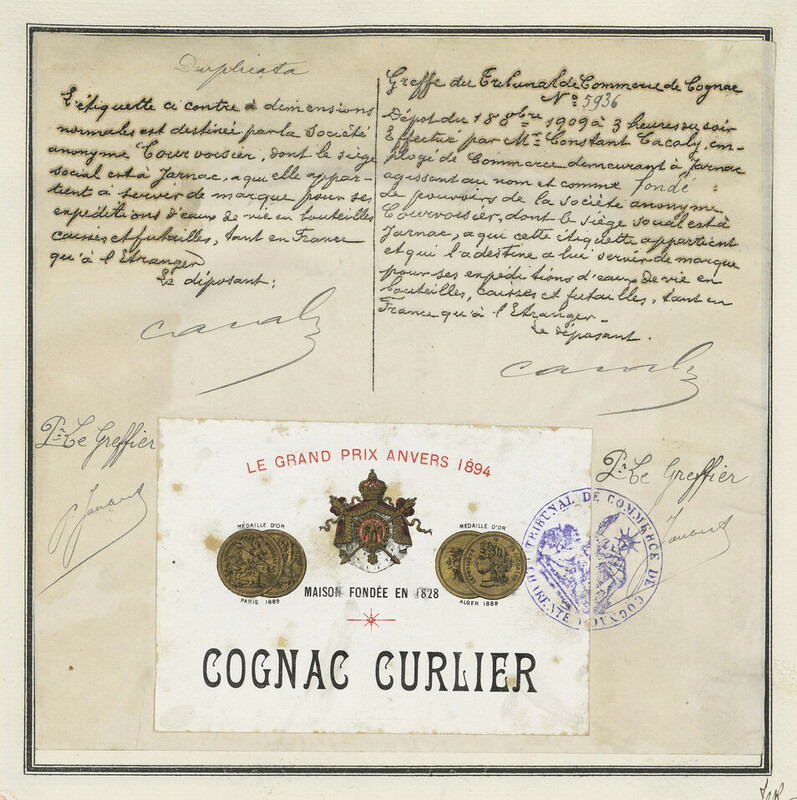 Duplicata
L'étiquette ci contre à dimensions
normales est destinée par la Société
anonyme Courvoisier, dont le siège
social est à Jarnac, a qui elle appar-
tient à servir de marque pour ses
expéditions d'eaux de vie en bouteilles
caisses et futailles, tant en France
qu'à l'Etranger
Le déposant:
Greffe du Tribunal de Commerce de Cognac
No 5936
Dépôt du 18 8bre 1909 à 3 heures du soir
Effectué par Mr Constant Cacaly, em-
ployé de Commerce demeurant à Jarnac
agissant au nom et comme fondé
de pouvoirs de la Société anonyme
Courvoisier, dont le siège social est à
Jarnac, a qui cette étiquette appartient
et qui l'a destine a lui servir de marque
pour ses expéditions d'eaux de vie en
bouteilles, caisses et futailles, tant en
France qu'à l'Etranger.-
Le déposant.
Pr Le Greffier
Pr Le Greffier
LE GRAND PRIX ANVERS 1894
MÉDAILLE D'OR
PARIS 1889
MEDAILLE D'OR
ALGER 1889
MAISON FONDÉE EN 1828
COGNAC CURLIER
TRIBUNAL DE COMMERCE DE COGNAC
CHARENTE